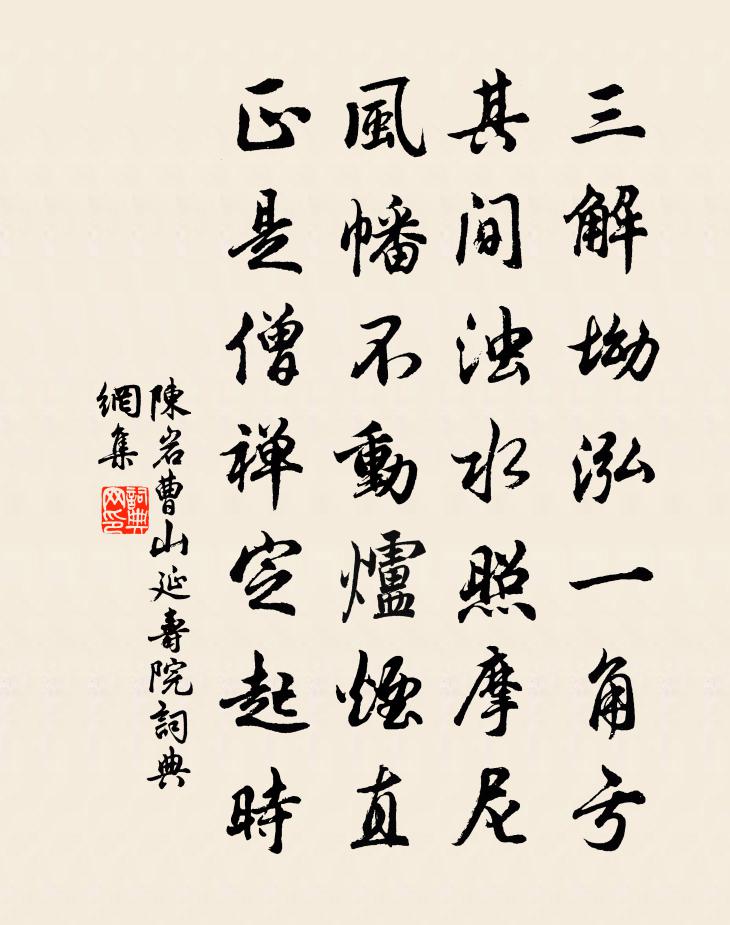 三解坳泓一角亏
其间浊水照摩尼
風幡不動爐煙直
正是僧禅定起時
陳岩曹山延壽院詞典
網集
詞典
网印